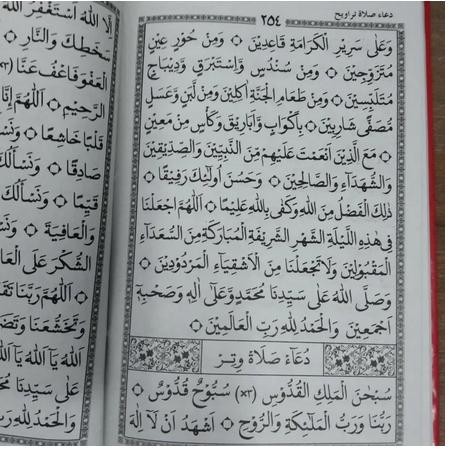 دعاء صلاة تراويح
٢٥٤
وَعَلَى سَرِيْرِ الْكَرَامَةِ قَاعِدِيْنَ ۞ وَمِنْ حُوْرٍ عِيْنٍ
مُتَزَوِّجِيْنَ ۞ وَمِنْ سُنْدُسٍ وَاِسْتَبْرَقٍ وَدِيْبَاجٍ
مُتَلَبِّسِيْنَ ۞ وَمِنْ طَعَامِ الْجَنَّةِ اٰكِلِيْنَ وَمِنْ لَبَنٍ وَعَسَلٍ
مُصَفًّى شَارِبِيْنَ ۞ بِاَكْوَابٍ وَاَبَارِيْقَ وَكَأْسٍ مِنْ مَعِيْنٍ
۞ مَعَ الَّذِيْنَ اَنْعَمْتَ عَلَيْهِمْ مِنَ النَّبِيِّيْنَ وَالصِّدِّيْقِيْنَ
وَالشُّهَدَاءِ وَالصَّالِحِيْنَ ۞ وَحَسُنَ اُولٰئِكَ رَفِيْقًا ۞
ذٰلِكَ الْفَضْلُ مِنَ اللهِ وَكَفٰى بِاللهِ عَلِيْمًا ۞ اَللّٰهُمَّ اجْعَلْنَا
فِيْ هٰذِهِ اللَّيْلَةِ الشَّهْرِ الشَّرِيْفَةِ الْمُبَارَكَةِ مِنَ السُّعَدَاءِ
الْمَقْبُوْلِيْنَ وَلَا تَجْعَلْنَا مِنَ الْاَشْقِيَاءِ الْمَرْدُوْدِيْنَ ۞
وَصَلَّى اللهُ عَلَى سَيِّدِنَا مُحَمَّدٍ وَعَلَى اٰلِهِ وَصَحْبِهِ
اَجْمَعِيْنَ وَالْحَمْدُ لِلّٰهِ رَبِّ الْعَالَمِيْنَ ۞
دُعَاءِ صَلَاةِ وِتِرْ
سُبْحٰنَ الْمَلِكِ الْقُدُّوْسِ (٣×) سُبُّوْحٌ قُدُّوْسٌ ۞
رَبُّنَا وَرَبُّ الْمَلٰٓئِكَةِ وَالرُّوْحِ ۞ اَشْهَدُ اَنْ لَا اِلٰهَ
اِلَّا اللهُ اَسْتَغْفِرُ
سَخَطِكَ وَالنَّارِ ۞
الْعَفْوَ فَاعْفُ عَنَّا (٣×)
الرَّحِيْمُ ۞ اَللّٰهُمَّ اِنَّا
قَلْبًا خَاشِعًا ۞
صَادِقًا ۞ وَنَسْأَلُكَ
قَيِّمًا ۞ وَنَسْأَلُكَ
وَالْعَافِيَةَ ۞
الشُّكْرَ عَلَى
۞ اَللّٰهُمَّ رَبَّنَا
وَتَخَشُّعَنَا
اَللهُ يَا اَللهُ يَا
عَلَى سَيِّدِنَا
وَالْحَمْدُ لِلّٰهِ رَبِّ